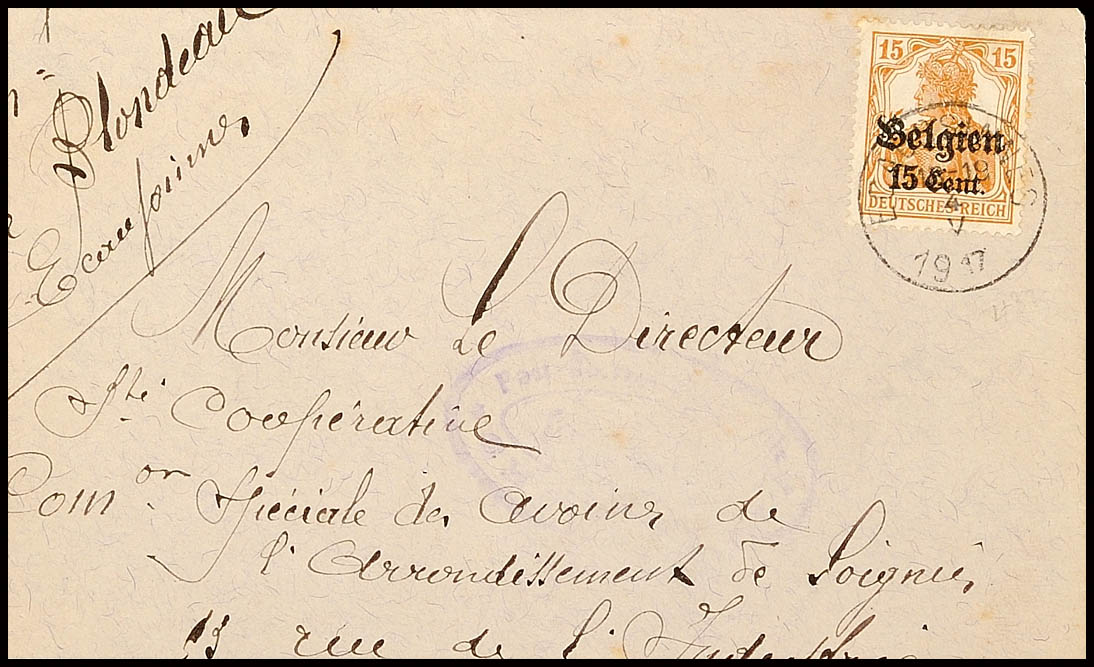 Plondeau
Ecaussinnes
15 15
Belgien
15 Cent.
DEUTSCHES REICH
4
V
1917
Monsieur Le Directeur
Sté Coopérative
Comon Spéciale des avoines de
l'arrondissement de Soignies
13 rue de l'Industrie